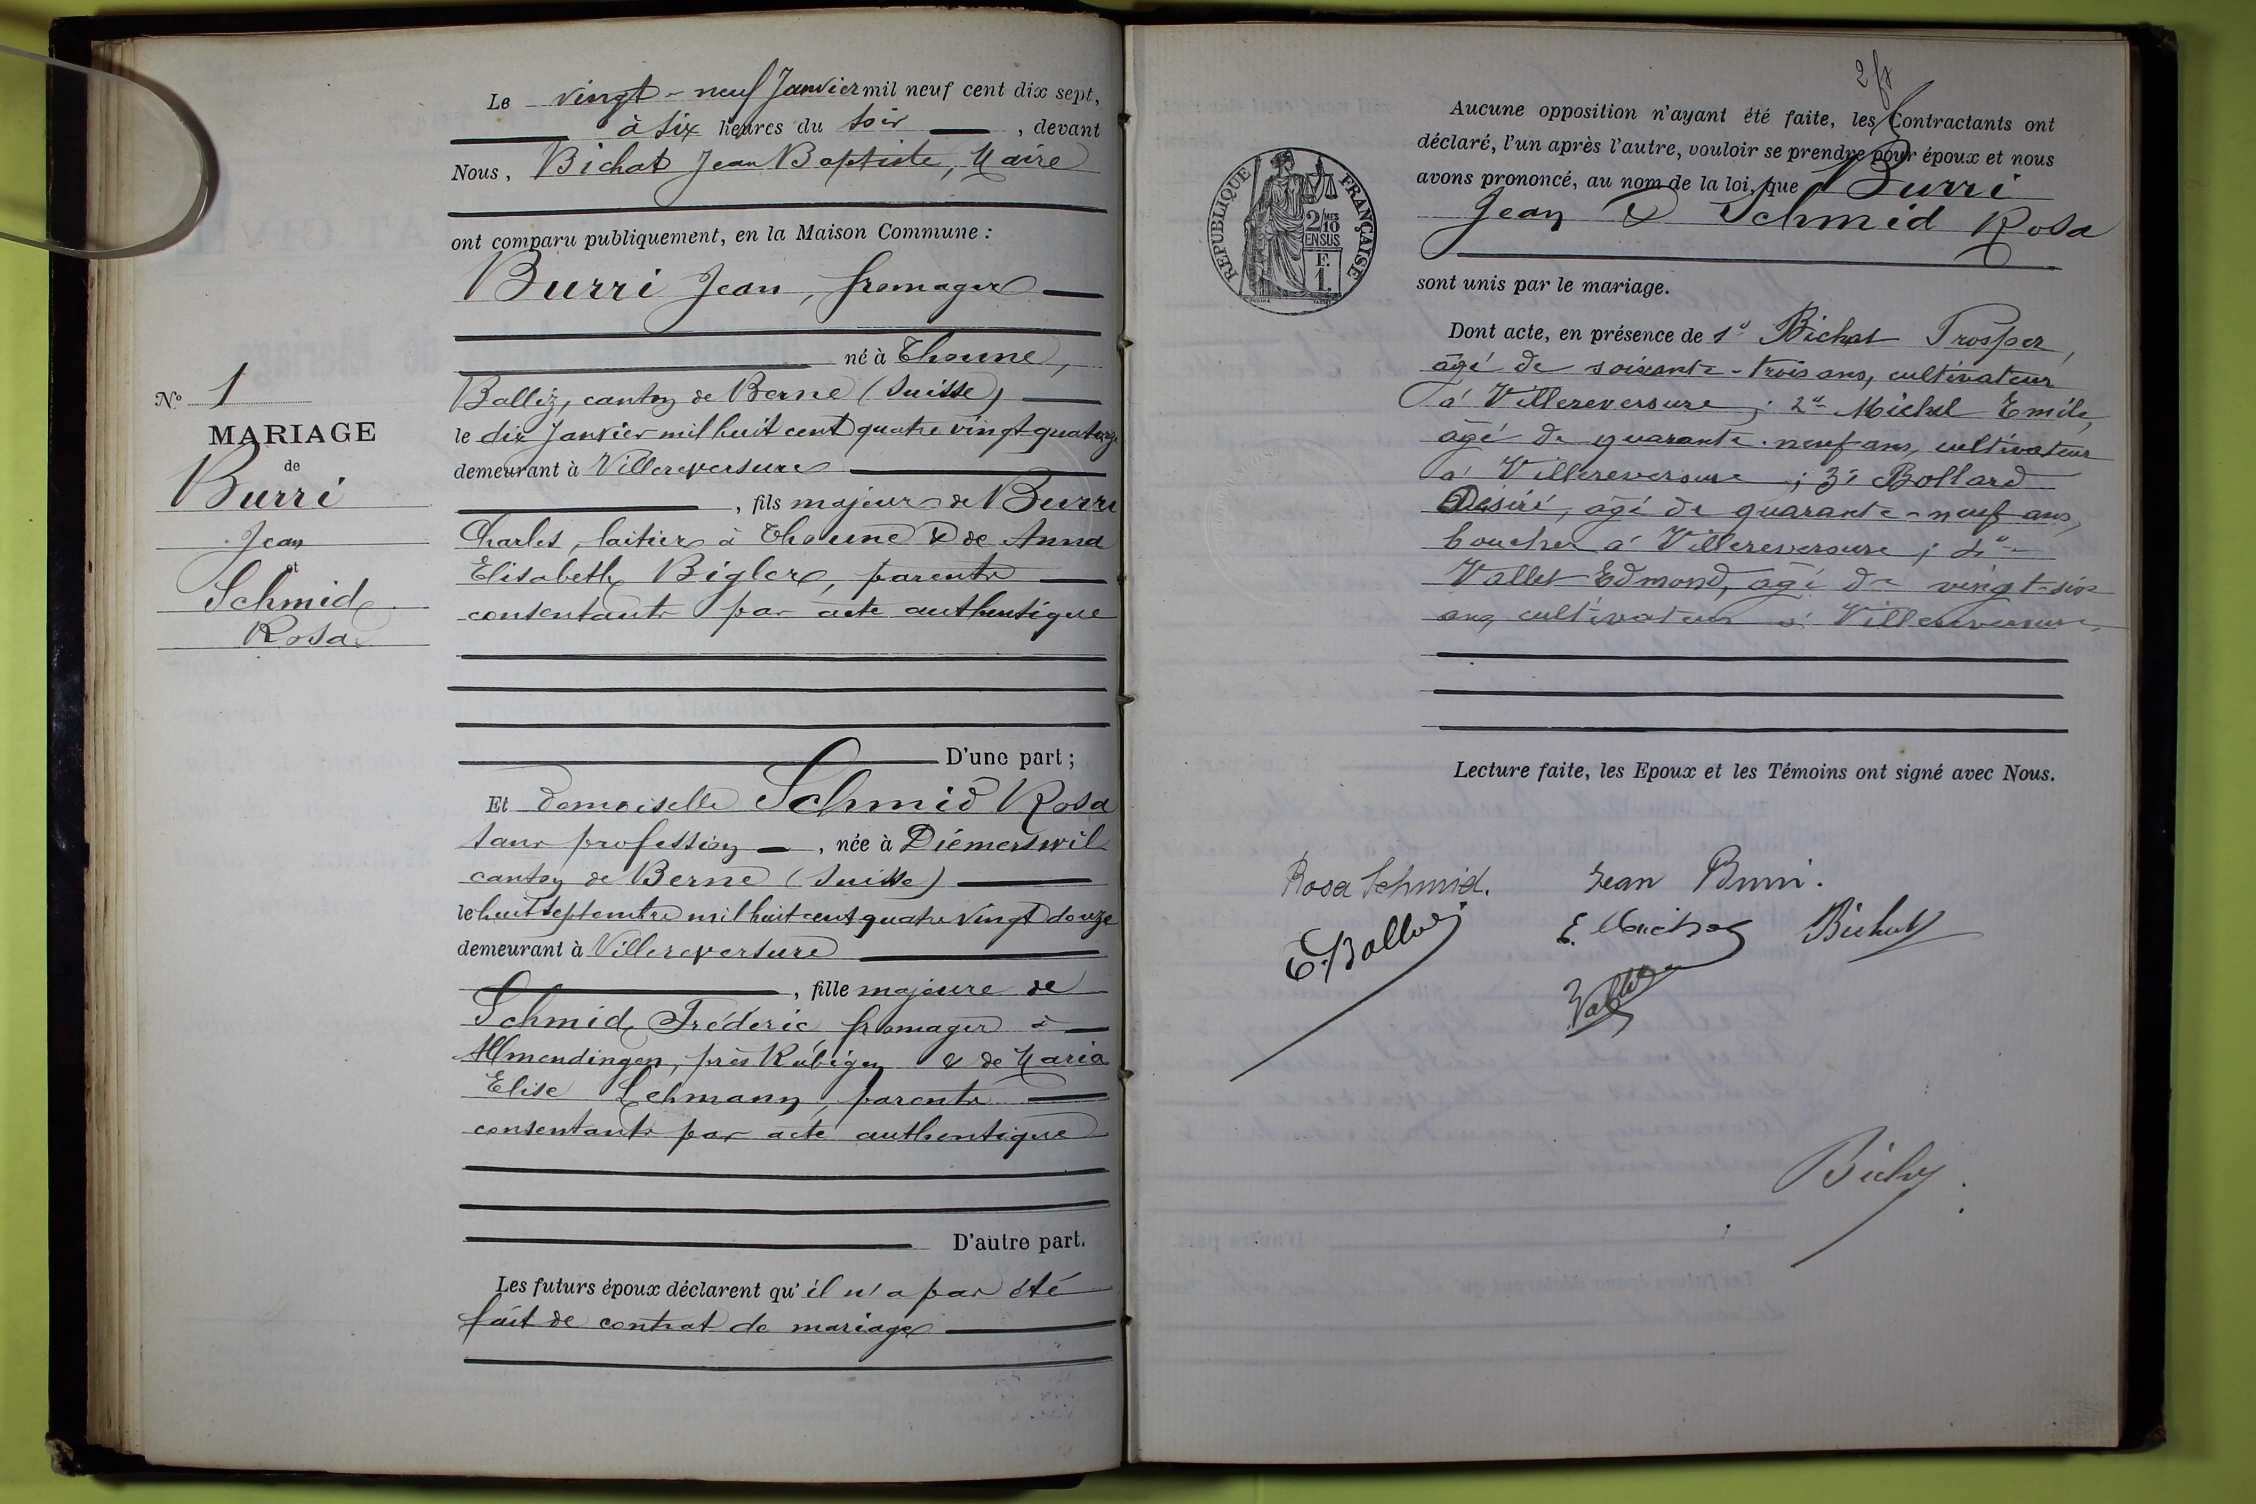 Le vingt-neuf Janvier mil neuf cent dix sept,
à six heures du soir, devant
Nous, Bichat Jean Baptiste, Maire
ont comparu publiquement, en la Maison Commune :
Burri Jean, fromager
né à Thoune,
Balliz, canton de Berne (Suisse)
le dix Janvier mil huit cent quatre vingt quatorze
demeurant à Villereversure
, fils majeur de Burri
Charles, laitier à Thoune & de Anna
Elisabeth Bigler, parents
consentants par acte authentique
D'une part ;
Et demoiselle Schmid Rosa
sans profession, née à Diémerswil
canton de Berne (Suisse)
le huit septembre mil huit cent quatre vingt douze
demeurant à Villereversure
, fille majeure de
Schmid Fréderic, fromager à
Allmendingen, près Rubigen & de Maria
Elise Lehmann, parents
consentants par acte authentique
D'autre part.
Les futurs époux déclarent qu'il n'a pas été
fait de contrat de mariage
N° 1
MARIAGE
de
Burri
Jean
et
Schmid
Rosa
2
Aucune opposition n'ayant été faite, les Contractants ont
déclaré, l'un après l'autre, vouloir se prendre pour époux et nous
avons prononcé, au nom de la loi, que Burri
Jean & Schmid Rosa
sont unis par le mariage.
RÉPUBLIQUE FRANÇAISE
2/10
EN SUS
F.
1.
Dont acte, en présence de 1° Bichat Prosper,
âgé de soixante-trois ans, cultivateur
à Villereversure ; 2° Michel Emile,
âgé de quarante-neuf ans, cultivateur
à Villereversure ; 3° Bollard
Désiré, âgé de quarante-neuf ans,
boucher à Villereversure ; 4°
Vallet Edmond, âgé de vingt-six
ans, cultivateur à Villereversure,
Lecture faite, les Epoux et les Témoins ont signé avec Nous.
Rosa Schmid. Jean Burri.
E. Michel Bichat
Vallet
Bichat